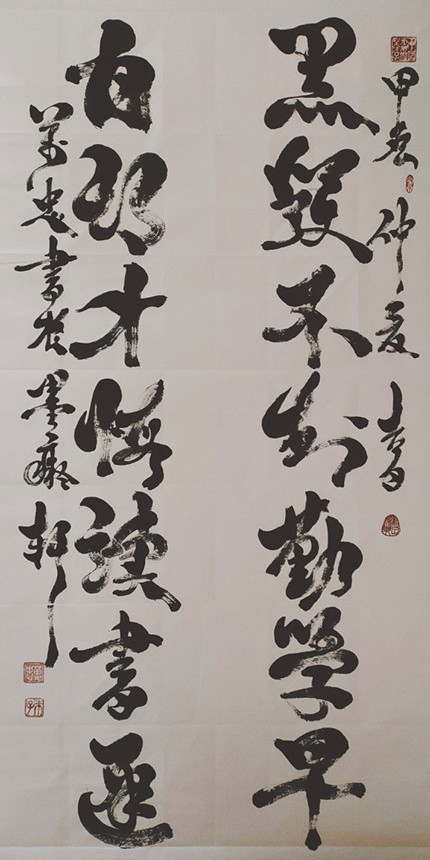 甲辰仲夏書
黑髮不知勤學早
白頭才悔讀書遲
萬忠書於墨癡軒